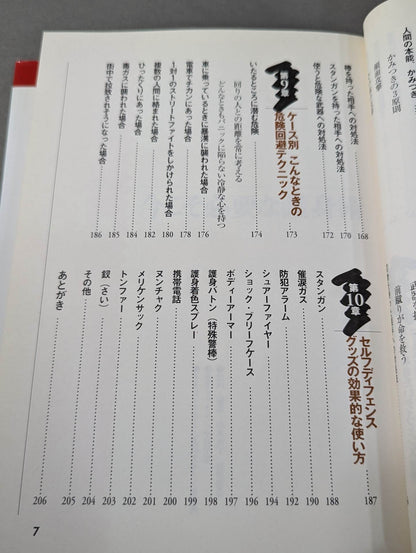 人間の本能、かみつき
かみつきの3原則
前蹴りが命を救う
棒を持った相手への対処法 168
スタンガンを持った相手への対処法 170
使うと危険な武器への対処法 172
第9章
ケース別 こんなときの
危険回避テクニック 173
いたるところに潜む危険 174
回りの人との距離を常に考える
どんなときもパニックに陥らない冷静な心を持つ
車に乗っているときに暴漢に襲われた場合 176
電車でチカンにあった場合 178
1対1のストリートファイトをしかけられた場合 180
複数の人間に絡まれた場合 182
ひったくりにあった場合 184
毒ガスに襲われた場合 185
街中で拉致されそうになった場合 186
第10章
セルフディフェンス
グッズの効果的な使い方 187
スタンガン 188
催涙ガス 190
防犯アラーム 192
シュアーファイヤー 194
ショック・ブリーフケース 196
ボディーアーマー 197
護身バトン(特殊警棒) 198
護身着色スプレー 199
携帯電話 200
ヌンチャク 201
メリケンサック 202
トンファー 203
釵(さい) 204
その他 205
あとがき 206
7